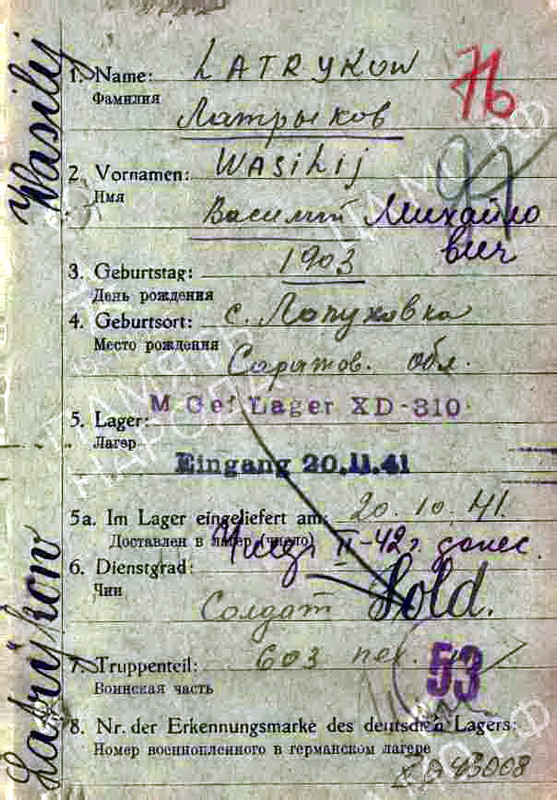 Wasilij
Latrykow
1. Name: LATRYKOW
Фамилия
Латрыков
76
2. Vornamen: WASiLij
Имя
Василий Михайло
вич
3. Geburtstag: 1903
День рождения
4. Geburtsort: с. Лопуховка
Место рождения
Саратов. обл.
5. Lager: M Gef Lager XD-310
Лагер
Eingang 20.11.41
5a. Im Lager eingeliefert am: 20.10.41.
Доставлен в лагер (число) II-42 г. донес.
6. Dienstgrad: Sold.
Чин
Солдат
7. Truppenteil: 603 пех.
Воинская часть
53
8. Nr. der Erkennungsmarke des deutschen Lagers:
Номер военнопленного в германском лагере